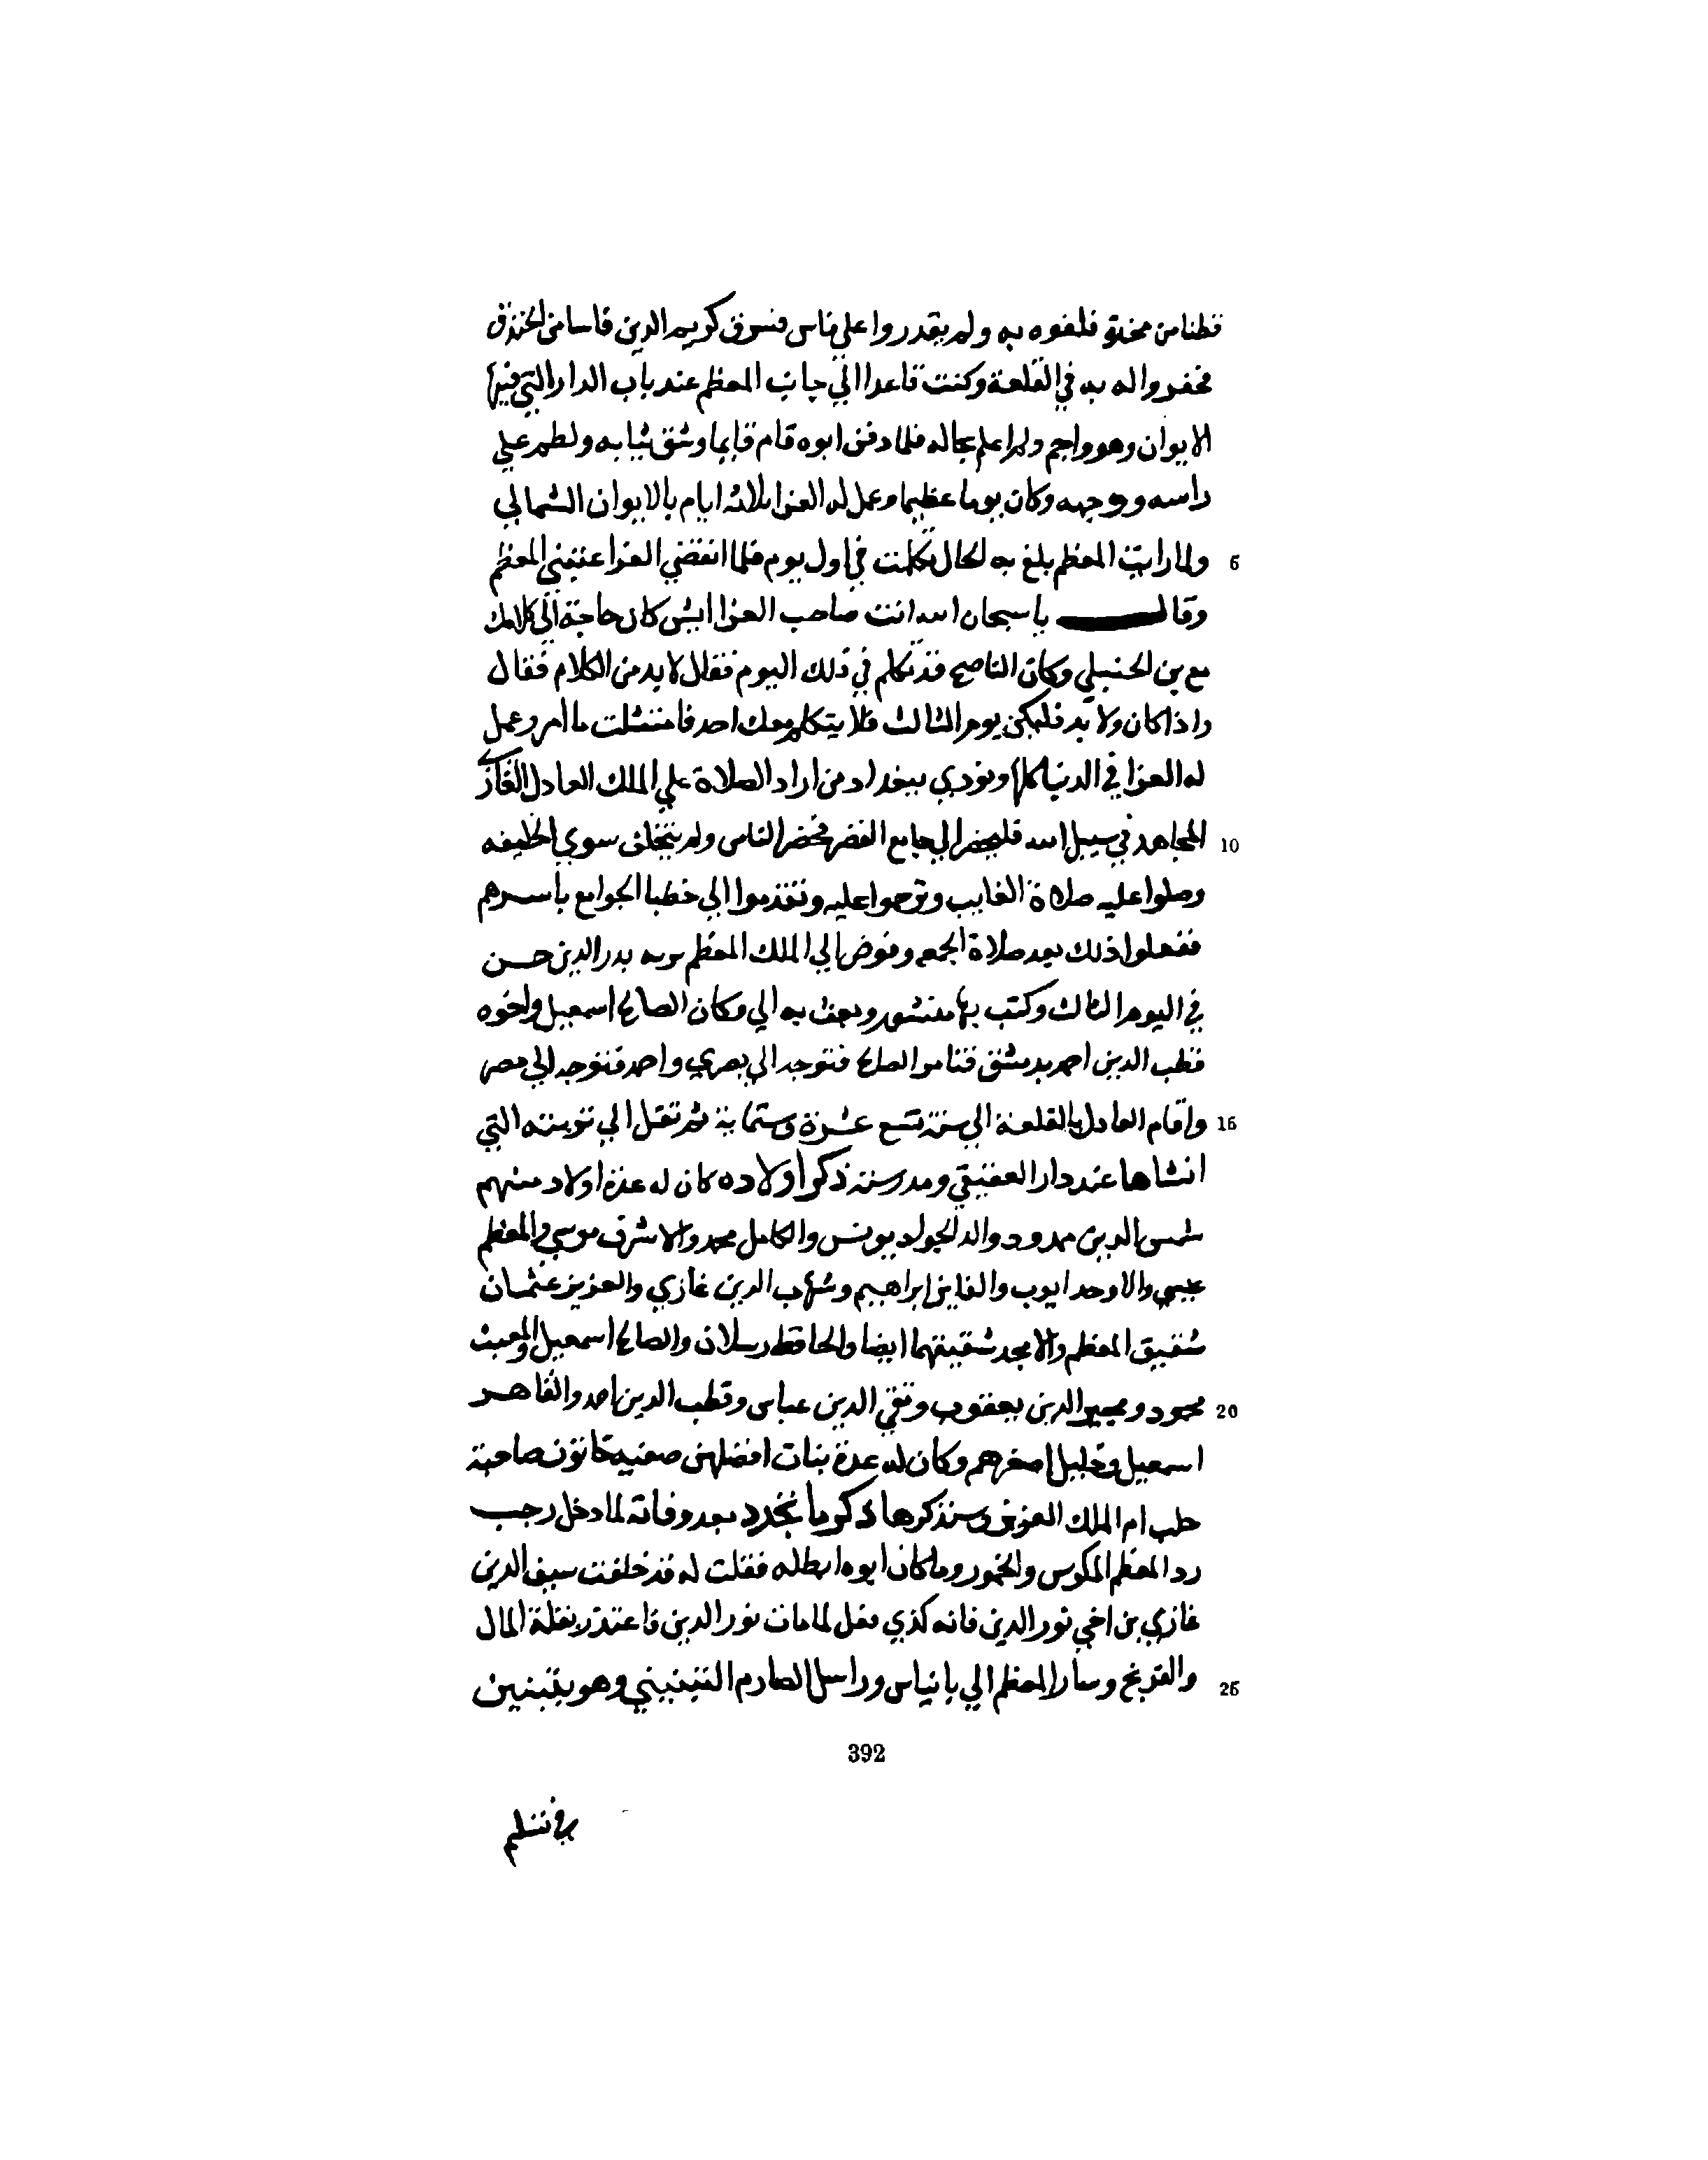 قطنا من مخدة فلفوه به ولم يقدروا على فاس فسرق كريم الدين فاسا من الخندق
فحفروا له به في القلعة وكنت قاعدا الي جانب المعظم عند باب الدار التي فيها
الايوان وهو واجم ولم اعلم بحاله فلما دفن ابوه قام قايما وشق ثيابه ولطم علي
راسه ووجهه وكان يوما عظيما وعمل له العزا ثلاثة ايام بالايوان الشمالي
5 ولما رايت المعظم بلغ به الحال تكلمت في اول يوم فلما انقضي العزا عتبني المعظم
وقال يا سبحان الله انت صاحب العزا ايش كان حاجة الي كلامك
مع بن الحنبلي وكان الناصح قد تكلم في ذلك اليوم فقال لا بد من الكلام فقال
واذا كان ولا بد فليكن يوم الثالث فلا يتكلم معك احد فامتثلت ما امر وعمل
له العزا في الدنيا كلها ونودي ببغداد من اراد الصلاة علي الملك العادل الغازي
10 المجاهد في سبيل الله فليحضر الي جامع القصر فحضر الناس ولم يتخلف سوي الخليفه
وصلوا عليه صلاة الغايب وترحموا عليه وتقدموا الي خطبا الجوامع باسرهم
ففعلوا ذلك بعد صلاة الجمعه وفوض الي الملك المعظم تربه بدر الدين حسن
في اليوم الثالث وكتب بها منشور وبعث به الي وكان الصالح اسمعيل واخوه
قطب الدين احمد بدمشق فتوجه الي بصري واحمد فتوجه الي مصر
15 واقام العادل بالقلعة الي سنة تسع عشرة وستماية ثم نقل الي تربته التي
انشاها عند دار العقيقي ومدرسته ذكر اولاده كان له عدة اولاد منهم
شمس الدين ممدود والد الجواد يونس والكامل محمد والاشرف موسي والمعظم
عيسي والاوحد ايوب والفايز ابراهيم وشهاب الدين غازي والعزيز عثمان
شقيق المعظم والامجد شقيقهما ايضا والحافظ رسلان والصالح اسمعيل والمغيث
20 محمود ومجير الدين يعقوب وتقي الدين عباس وقطب الدين احمد والقاهر
اسمعيل وخليل اصغرهم وكان له عدة بنات افضلهن صفية خاتون صاحبة
حلب ام الملك العزيز وسنذكرها ذكر ما تجدد بعد وفاته لما دخل رجب
رد المعظم المكوس والخمور وما كان ابوه ابطله فقلت له قد خلفت سيف الدين
غازي بن اخي نور الدين فانه كذي فعل لما مات نور الدين فاعتذر بقلة المال
25 والفرنج وسار المعظم الي بانياس وراسل الصارم التبنيني وهو بتبنين
392